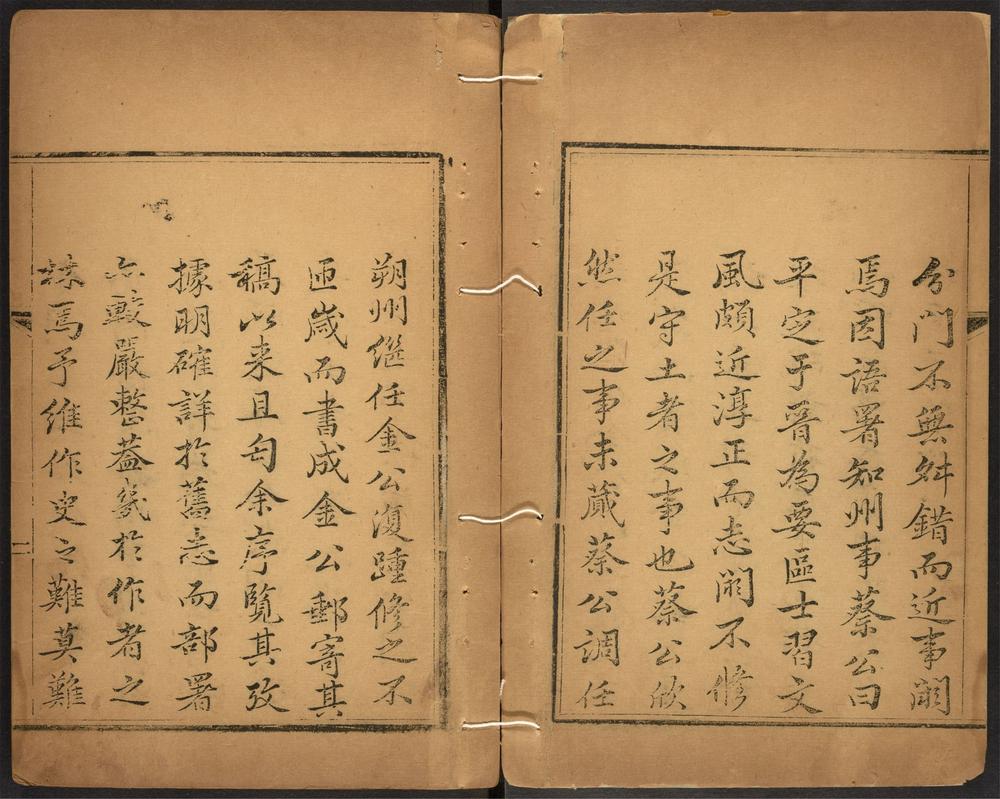 分門不無舛錯而近事闕
焉因語署知州事蔡公曰
平定于晉為要區士習文
風頗近淳正而志闕不修
是守土者之事也蔡公欣
然任之事未蕆蔡公調任
朔州繼任金公復踵修之不
匝歲而書成金公郵寄其
稿以来且匄余序覽其攷
據明確詳於舊志而部署
亦嚴整蓋㡬於作者之
焉予維作史之難莫難